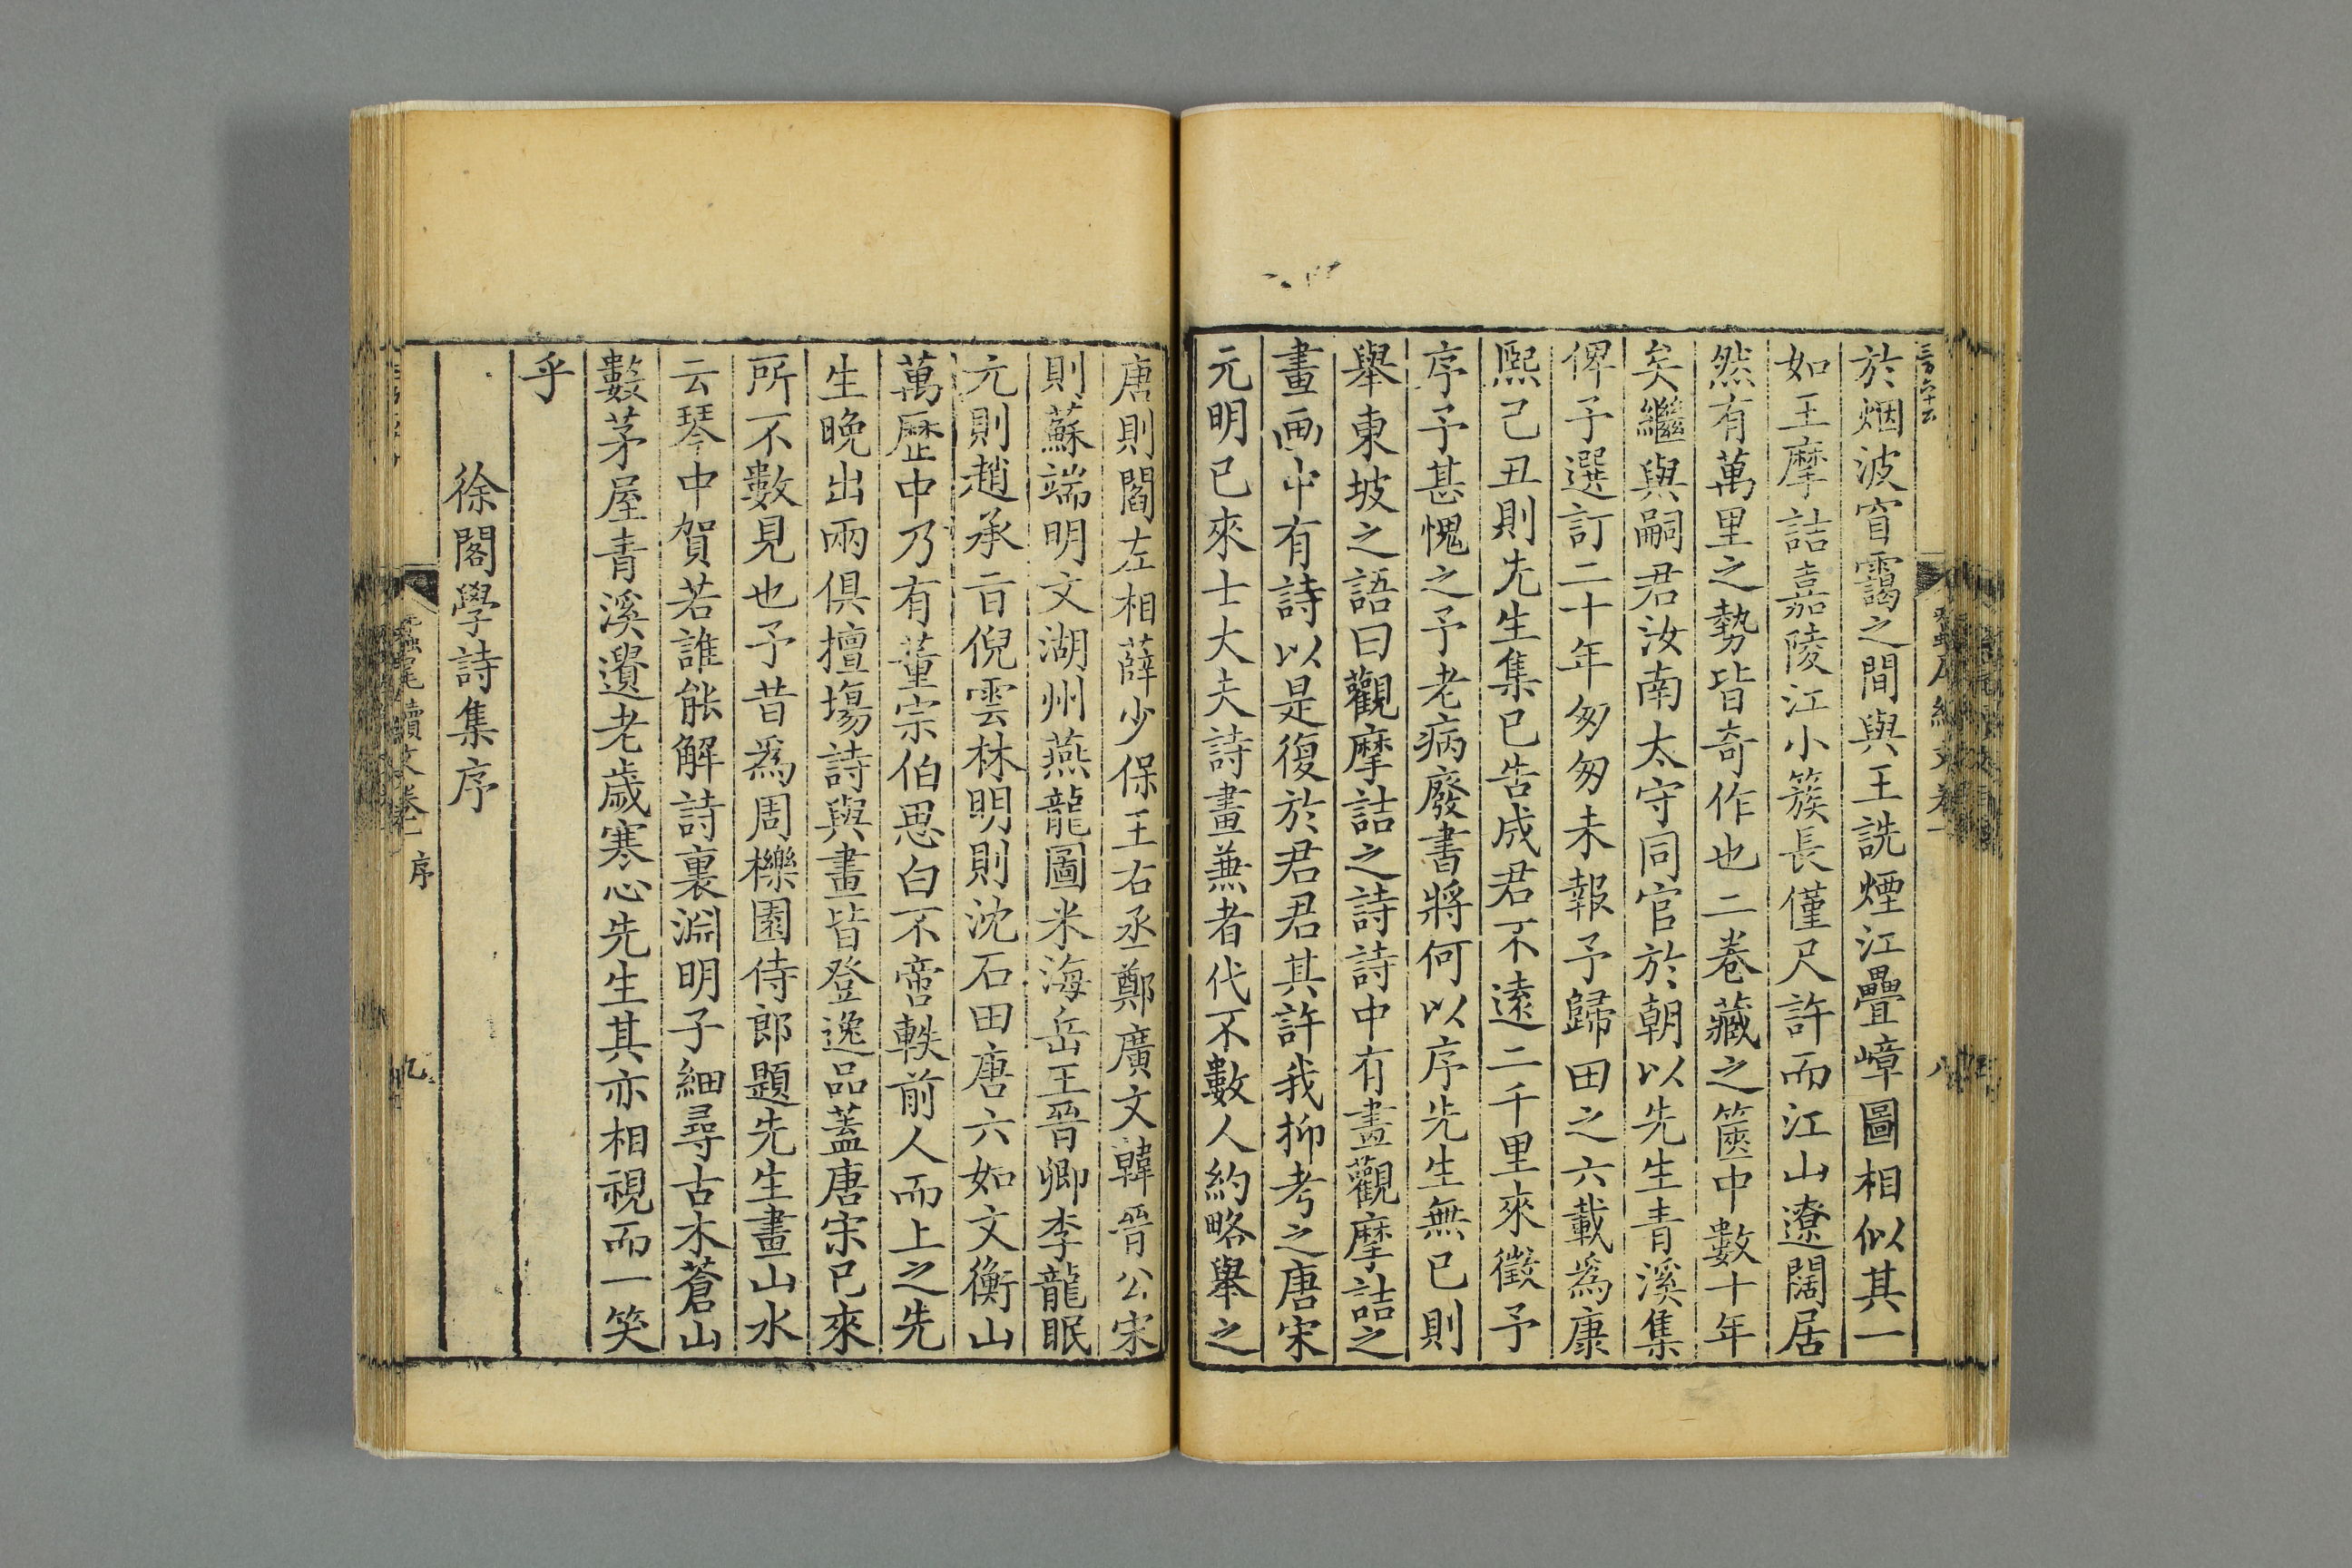 於烟波窅靄之間與王詵煙江疊嶂圖相似其一
如王摩詰嘉陵江小簇長僅尺許而江山遼闊居
然有萬里之勢皆奇作也二卷藏之篋中數十年
矣繼與嗣君汝南太守同官於朝以先生青溪集
俾予選訂二十年匆匆未報予歸田之六載爲康
熙己丑則先生集已吿成君不遠二千里來徵予
序予甚愧之予老病廢書將何以序先生無已則
舉東坡之語曰觀摩詰之詩詩中有畫觀摩詰之
畫画中有詩以是復於君君其許我抑考之唐宋
元明已來士大夫詩畫兼者代不數人約略舉之
唐則閻左相薛少保王右丞鄭廣文韓晉公宋
則蘇端明文湖州燕龍圖米海岳王晉卿李龍眠
元則趙承旨倪雲林明則沈石田唐六如文衡山
萬歷中乃有董宗伯思白不啻軼前人而上之先
生晚出兩俱擅塲詩與畫皆登逸品蓋唐宋已來
所不數見也予昔爲周櫟園侍郎題先生畫山水
云琴中賀若誰能解詩裏淵明子細尋古木蒼山
數茅屋青溪遺老歲寒心先生其亦相視而一笑
乎
徐閣學詩集序
蠶尾續文卷一 序 九